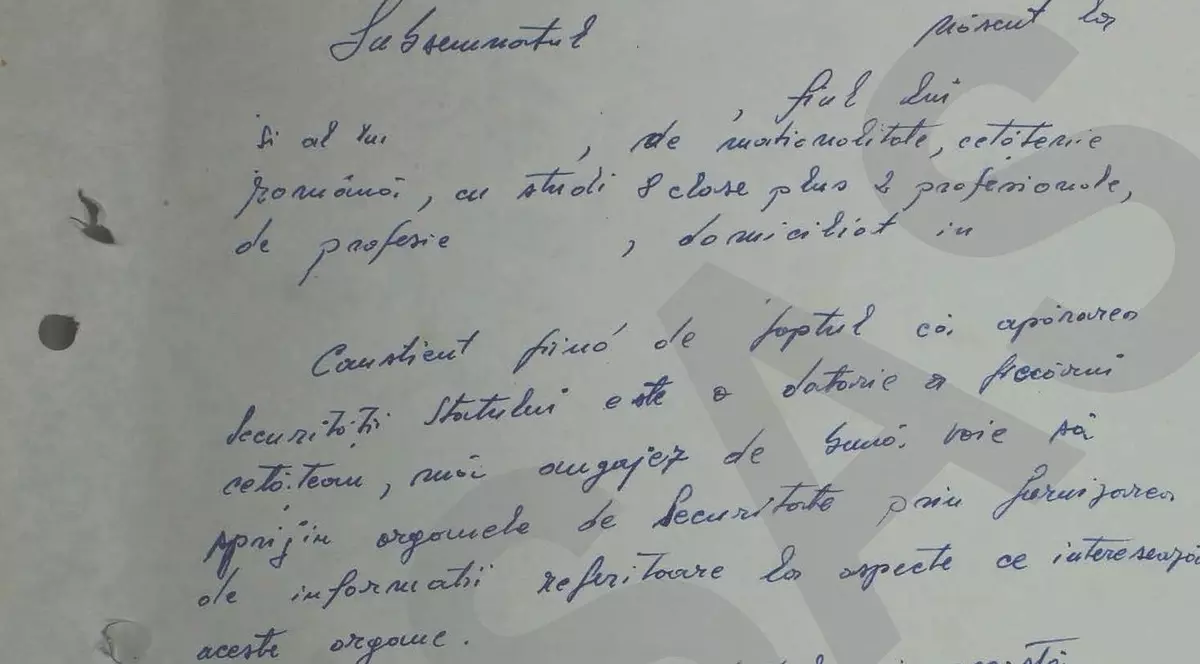 Subsemnatul născut la
, fiul lui
și al lui , de naționalitate, cetățenie
română, cu studi 8 clase plus 2 profesionale,
de profesie , domiciliat in
Conștient fiind de faptul că apărarea
securității statului este o datorie a fiecărui
cetățean, mă angajez de bună voie să
sprijin organele de Securitate prin furnizarea
de informații referitoare la aspecte ce interesează
aceste organe.